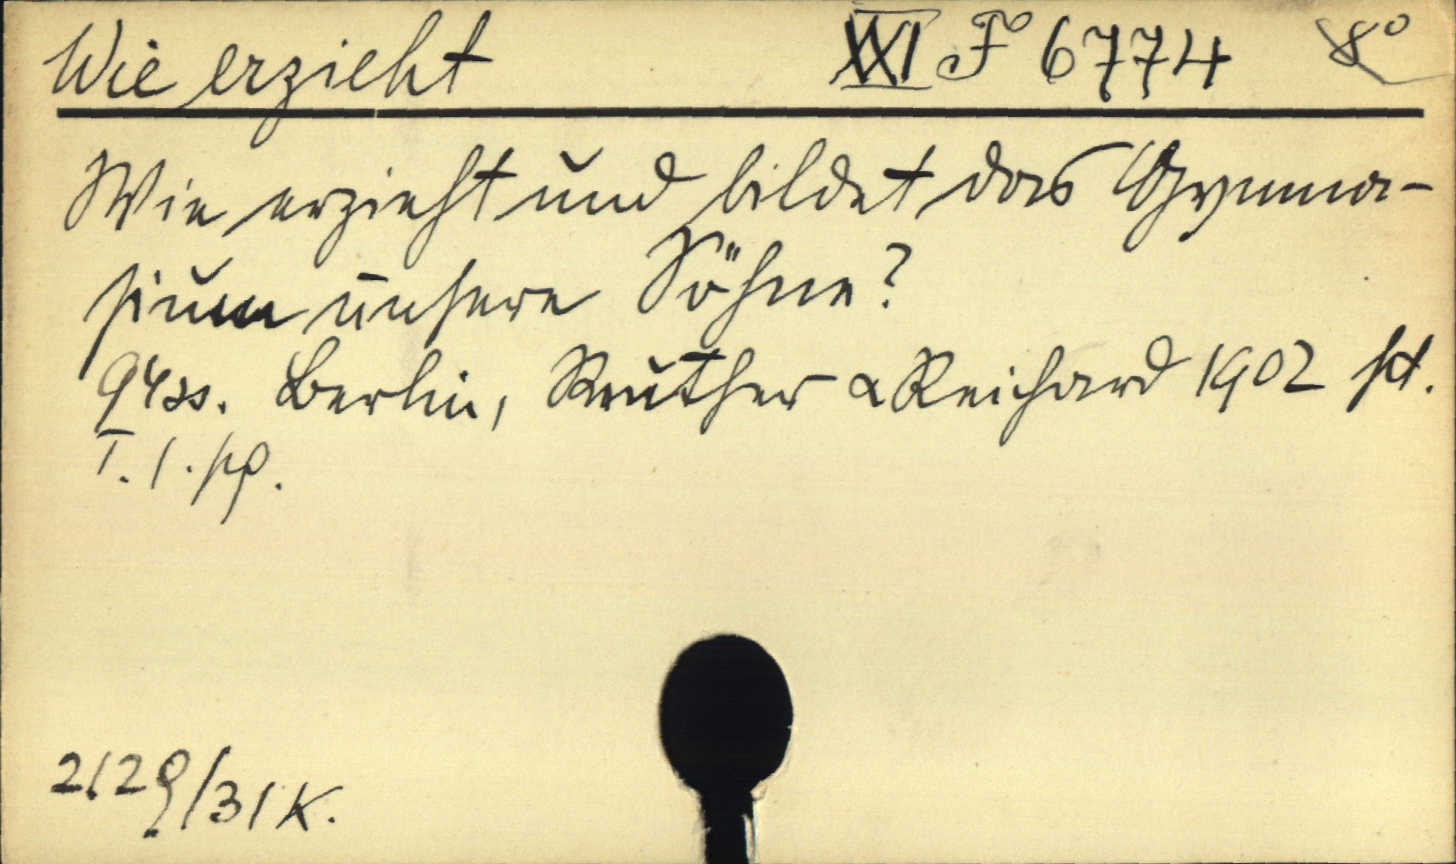 Wie erzieht XXI F° 6774 8°
Wie erzieht und bildet das Gymna-
sium unsere Söhne?
94 ss. Berlin, Reuther & Reichard 1902 ft.
T. 1. pp.
2129/31 K.